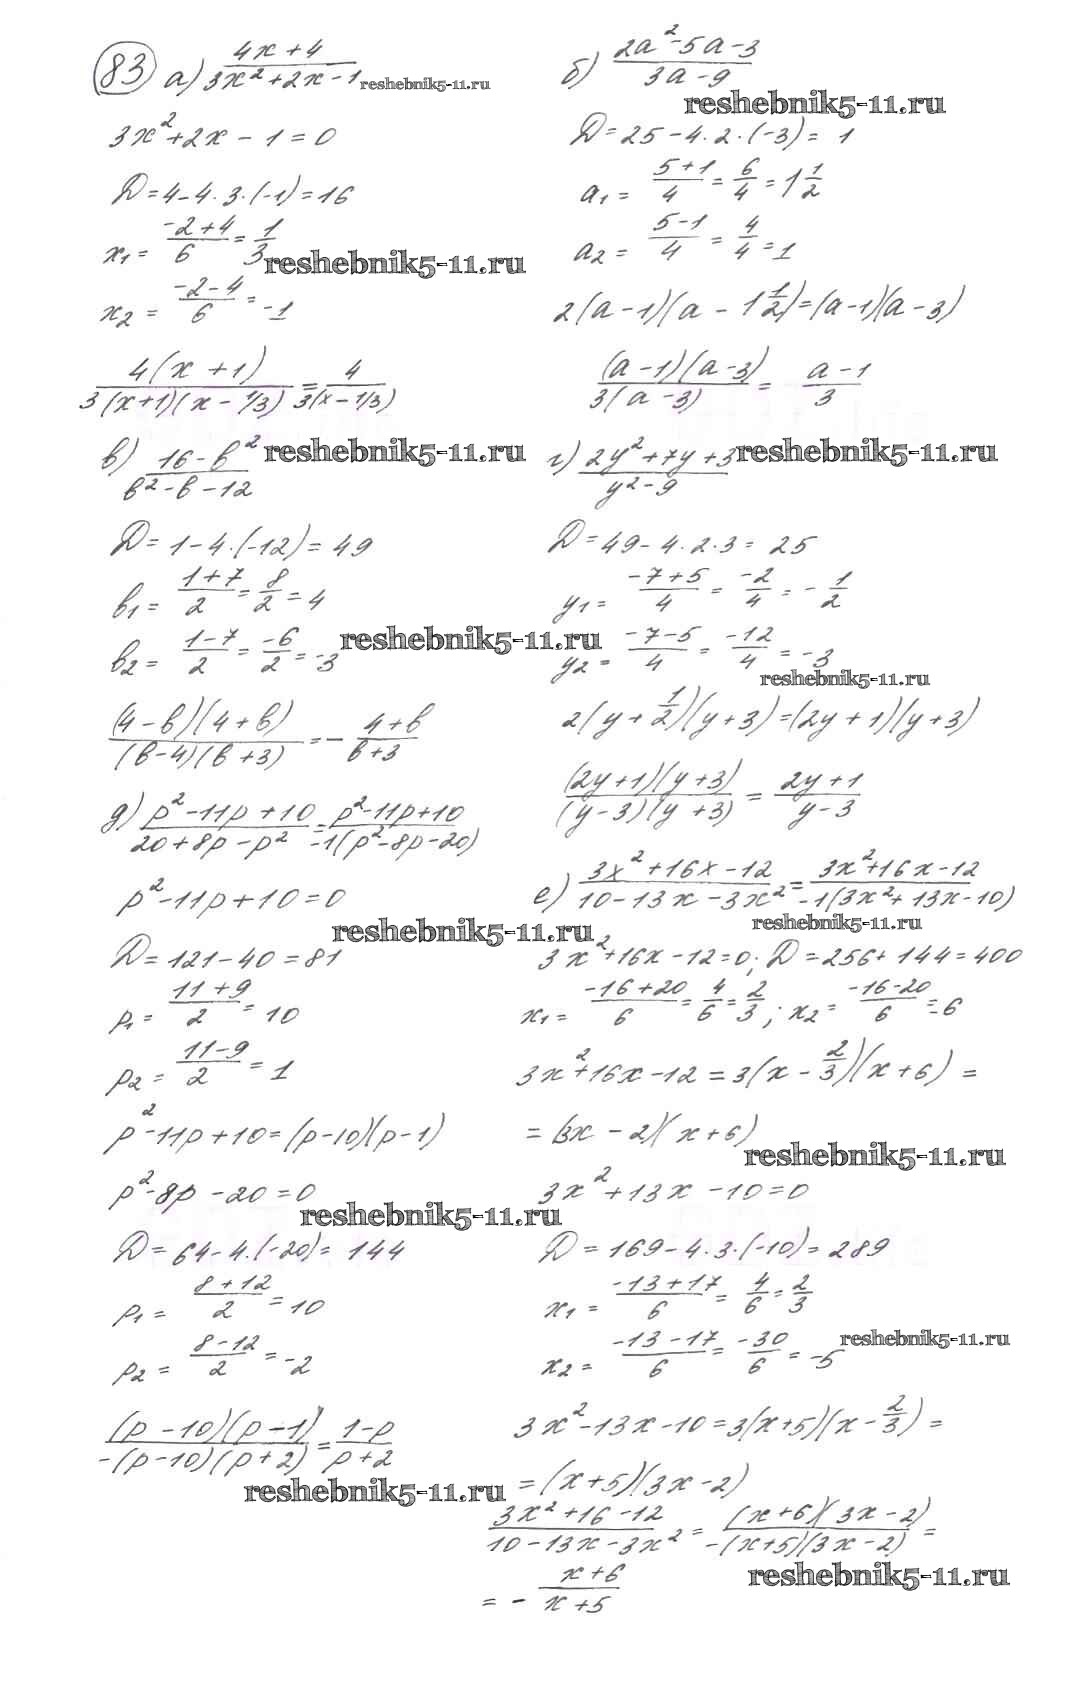 83 а) (4x+4)/(3x²+2x-1) reshebnik5-11.ru
3x²+2x-1=0
D=4-4·3·(-1)=16
x₁=(-2+4)/6=1/3
reshebnik5-11.ru
x₂=(-2-4)/6=-1
4(x+1)/(3(x+1)(x-1/3))=4/(3(x-1/3))
б) (2a²-5a-3)/(3a-9)
reshebnik5-11.ru
D=25-4·2·(-3)=1
a₁=(5+1)/4=6/4=1 1/2
a₂=(5-1)/4=4/4=1
2(a-1)(a-1 1/2)=(a-1)(a-3)
(a-1)(a-3)/(3(a-3))=(a-1)/3
в) (16-b²)/(b²-b-12) reshebnik5-11.ru
D=1-4·(-12)=49
b₁=(1+7)/2=8/2=4
b₂=(1-7)/2=-6/2=-3
reshebnik5-11.ru
(4-b)(4+b)/((b-4)(b+3))=-(4+b)/(b+3)
г) (2y²+7y+3)/(y²-9) reshebnik5-11.ru
D=49-4·2·3=25
y₁=(-7+5)/4=-2/4=-1/2
y₂=(-7-5)/4=-12/4=-3
reshebnik5-11.ru
2(y+1/2)(y+3)=(2y+1)(y+3)
(2y+1)(y+3)/((y-3)(y+3))=(2y+1)/(y-3)
д) (p²-11p+10)/(20+8p-p²)=(p²-11p+10)/(-1(p²-8p-20))
p²-11p+10=0
reshebnik5-11.ru
D=121-40=81
p₁=(11+9)/2=10
p₂=(11-9)/2=1
p²-11p+10=(p-10)(p-1)
p²-8p-20=0
reshebnik5-11.ru
D=64-4·(-20)=144
p₁=(8+12)/2=10
p₂=(8-12)/2=-2
(p-10)(p-1)/(-(p-10)(p+2))=(1-p)/(p+2)
reshebnik5-11.ru
е) (3x²+16x-12)/(10-13x-3x²)=(3x²+16x-12)/(-1(3x²+13x-10))
reshebnik5-11.ru
3x²+16x-12=0; D=256+144=400
x₁=(-16+20)/6=4/6=2/3; x₂=(-16-20)/6=-6
3x²+16x-12=3(x-2/3)(x+6)=
=(3x-2)(x+6)
reshebnik5-11.ru
3x²+13x-10=0
D=169-4·3·(-10)=289
x₁=(-13+17)/6=4/6=2/3
x₂=(-13-17)/6=-30/6=-5
reshebnik5-11.ru
3x²-13x-10=3(x+5)(x-2/3)=
=(x+5)(3x-2)
(3x²+16-12)/(10-13x-3x²)=(x+6)(3x-2)/(-(x+5)(3x-2))=
reshebnik5-11.ru
=-(x+6)/(x+5)